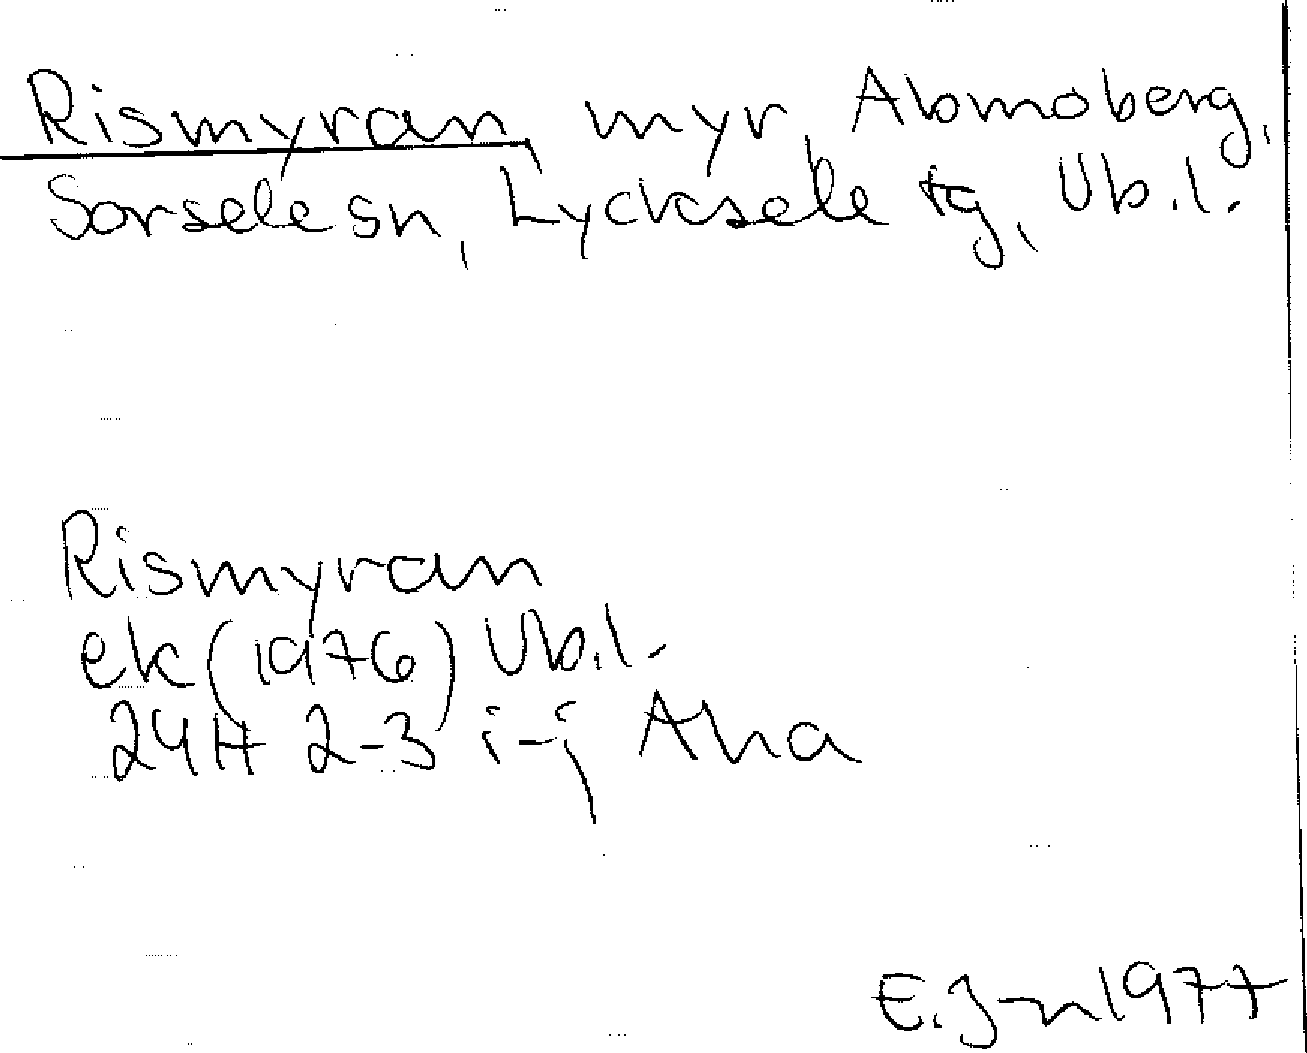 Rismyran, myr, Abmoberg,
Sorsele sn, Lycksele tg, Vb.l.
Rismyran
ek (1976) Vb.l.
24H 2-3 i-j Aha
E. J-n 1977